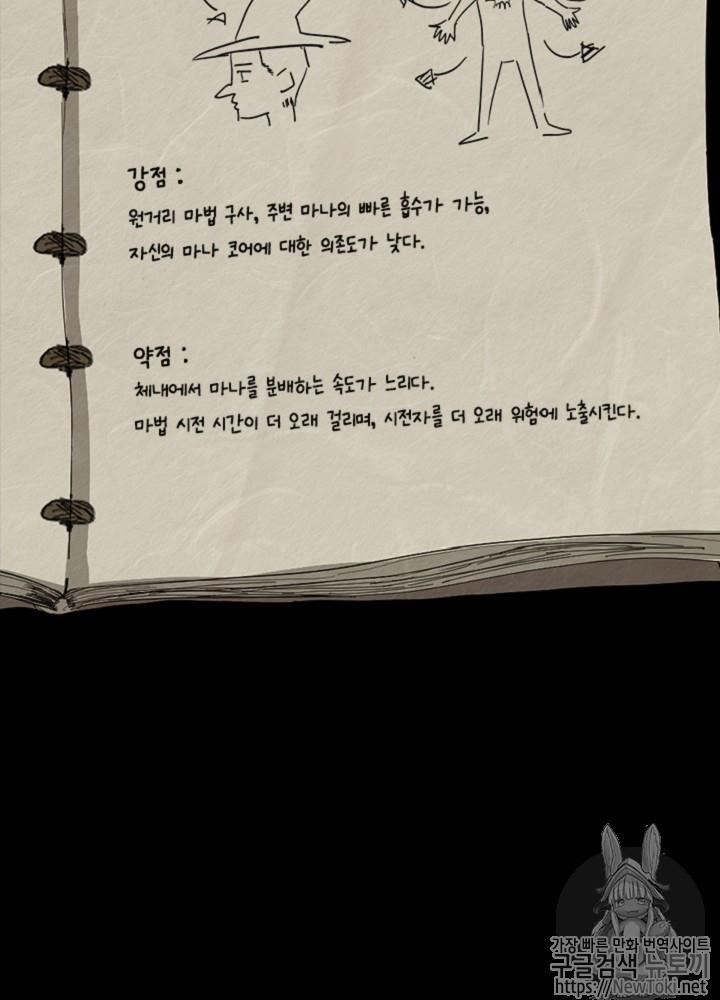 강점 :
원거리 마법 구사, 주변 마나의 빠른 흡수가 가능,
자신의 마나 코어에 대한 의존도가 낮다.
약점 :
체내에서 마나를 분배하는 속도가 느리다.
마법 시전 시간이 더 오래 걸리며, 시전자를 더 오래 위험에 노출시킨다.
가장 빠른 만화 번역사이트
구글검색 뉴토끼
https://NewToki.net